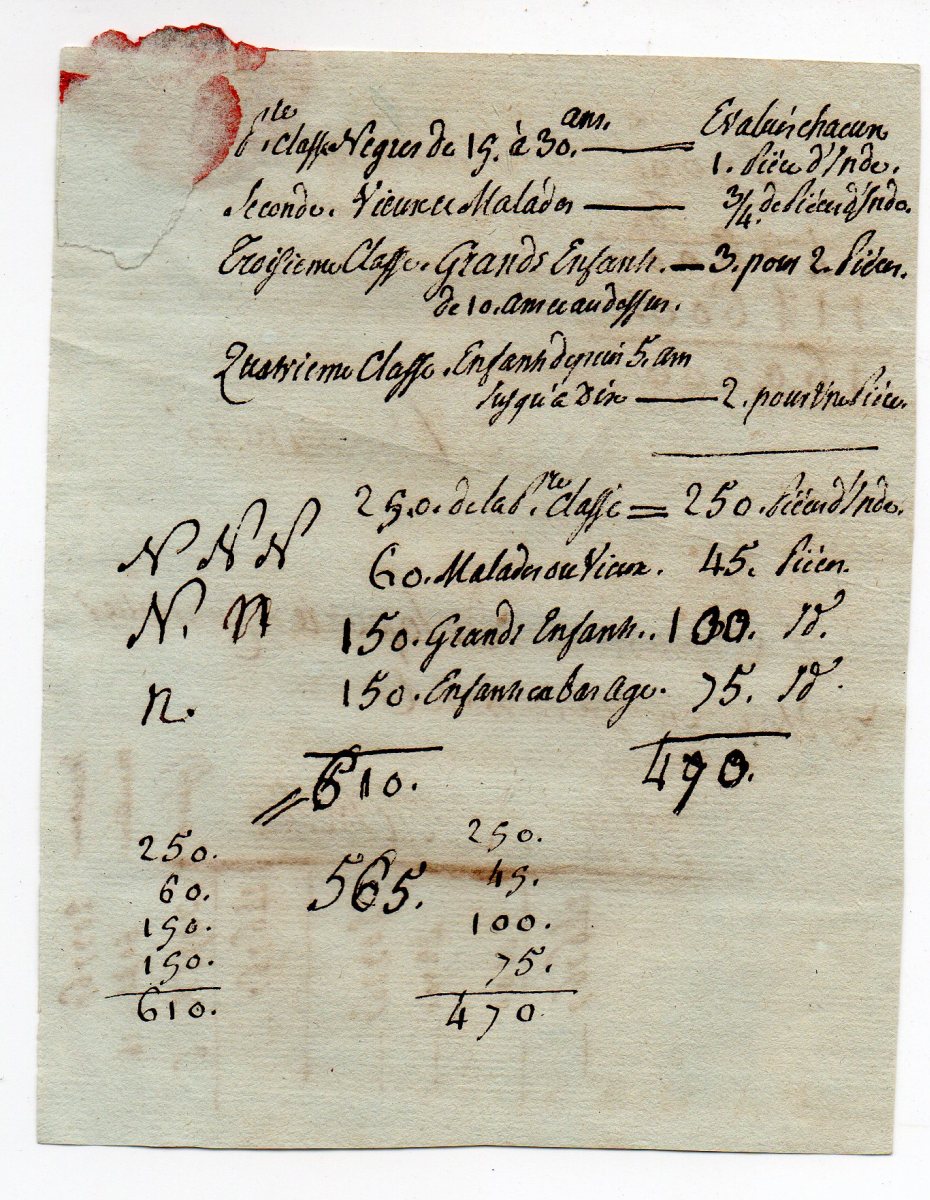 P.re Classe Negres de 15. à 30. ans. — Evalués chacun
1. Piéce d'Inde.
Seconde. Vieux et Malades — 3/4. de Piéces d'Inde.
Troisieme Classe. Grands Enfants. — 3. pour 2. Piéces.
de 10. ans et au dessus.
Quatrieme Classe. Enfants depuis 5. ans
Jusqu'à Dix — 2. pour Une Piéce.
250. de la P.re Classe = 250. Piéces d'Inde.
N N N
60. Malades ou Vieux. 45. Piéces.
N. n
150. Grands Enfants. . 100. Id.
n.
150. Enfants en bas Age. 75. Id.
= 610. 470.
250. 250.
60. 565. 45.
150. 100.
150. 75.
610. 470